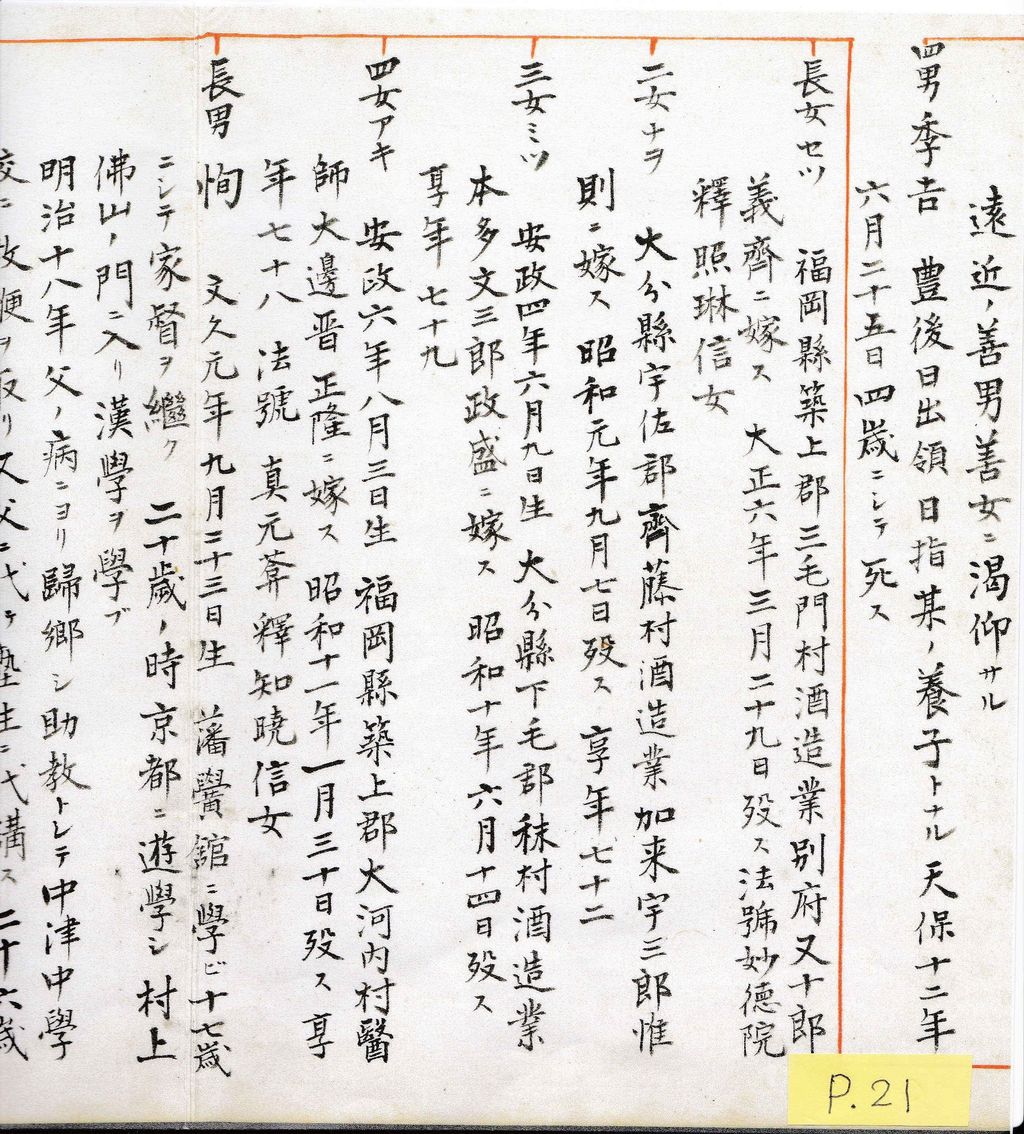 遠近ノ善男善女ニ渇仰サル
四男季吉 豊後日出領日指某ノ養子トナル天保十二年
六月二十五日四歳ニシテ死ス
長女セツ 福岡縣築上郡三毛門村酒造業別府又十郎
義齊ニ嫁ス 大正六年三月二十九日歿ス法號妙德院
釋照琳信女
二女ナヲ 大分縣宇佐郡齊藤村酒造業加来宇三郎惟
則ニ嫁ス 昭和元年九月七日歿ス 享年七十二
三女ミツ 安政四年六月九日生 大分縣下毛郡秣村酒造業
本多文三郎政盛ニ嫁ス 昭和十年六月十四日歿ス
享年七十九
四女アキ 安政六年八月三日生 福岡縣築上郡大河内村醫
師大邊晋正隆ニ嫁ス 昭和十一年一月三十日歿ス 享
年七十八 法號 真元葊釋知曉信女
長男 恂 文久元年九月二十三日生 藩黌舘ニ學ビ十七歳
ニシテ家督ヲ繼ク 二十歳ノ時京都ニ遊學シ村上
佛山ノ門ニ入リ漢學ヲ學ブ
明治十八年父ノ病ニヨリ歸郷シ助教トシテ中津中學
校ニ教便ヲ取リ又父ニ代テ塾生ニ代講ス 二十六歳
P.21